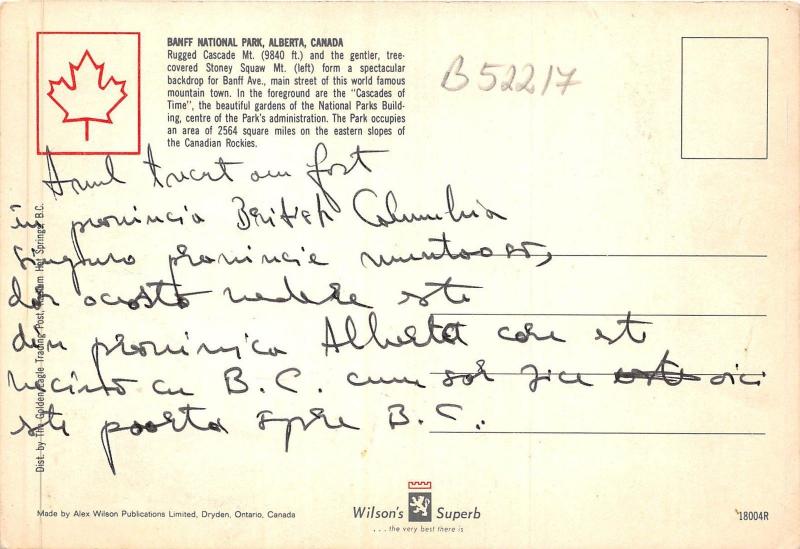 BANFF NATIONAL PARK, ALBERTA, CANADA
Rugged Cascade Mt. (9840 ft.) and the gentler, tree-
covered Stoney Squaw Mt. (left) form a spectacular
backdrop for Banff Ave., main street of this world famous
mountain town. In the foreground are the "Cascades of
Time", the beautiful gardens of the National Parks Build-
ing, centre of the Park's administration. The Park occupies
an area of 2564 square miles on the eastern slopes of
the Canadian Rockies.
B52217
Anul trecut am fost
în provincia British Columbia
singura provincie muntoasă,
dar acesta vedere este
din provinica Alberta care este
vecină cu B.C. cum s-ar zice aici
este poarta spre B.C.
Dist. by The Golden Eagle Trading Post, Radium Hot Springs, B.C.
Made by Alex Wilson Publications Limited, Dryden, Ontario, Canada
Wilson's Superb
...the very best there is
18004R